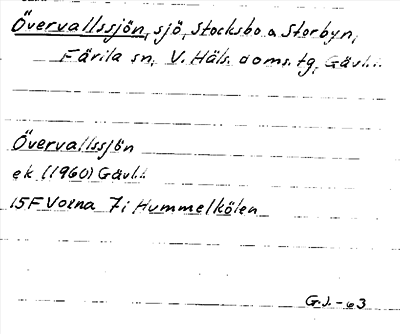 Övervallssjön, sjö, Stocksbo o Storbyn,
Färila sn, V. Häls. doms. tg, Gävl.l.
Övervallssjön
ek (1960) Gävl.l.
15F Voxna 7i Hummelkölen
G.J. - 63